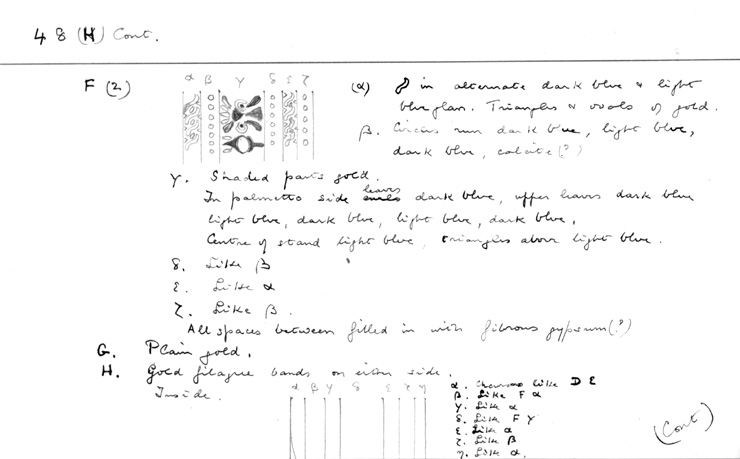 48 (H) Cont.
F (2)
α β γ δ ε ζ
(α) in alternate dark blue & light
blue glass. Triangles & ovals of gold.
β. Circles run dark blue, light blue,
dark blue, calcite (?)
γ. Shaded parts gold.
In palmetto side leaves dark blue, upper leaves dark blue
light blue, dark blue, light blue, dark blue.
Centre of stand light blue, triangles above light blue.
δ. Like β
ε. Like α
ζ. Like β.
All spaces between filled in with fibrous gypsum (?)
G. Plain gold.
H. Gold filagree bands on either side.
Inside.
α β γ δ ε ζ η
α. like D E
β. Like F α
γ. Like α
δ. Like F γ
ε. Like α
ζ. Like β
η. Like α.
(Cont)